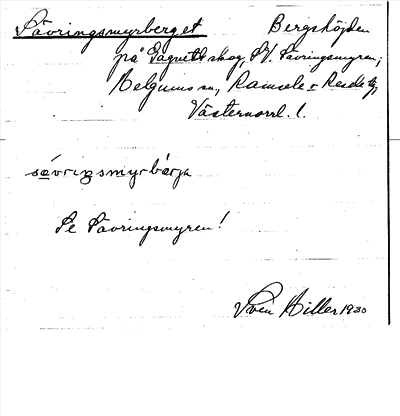 Sävringsmyrberget Bergshöjden
på Fagnäs skog, SV. Sävringsmyren;
Helgums sn, Ramsele o. Resele tg,
Västernorrl. l.
sävriŋsmyrbärjə
Se Sävringsmyren!
Sven Hiller 1930